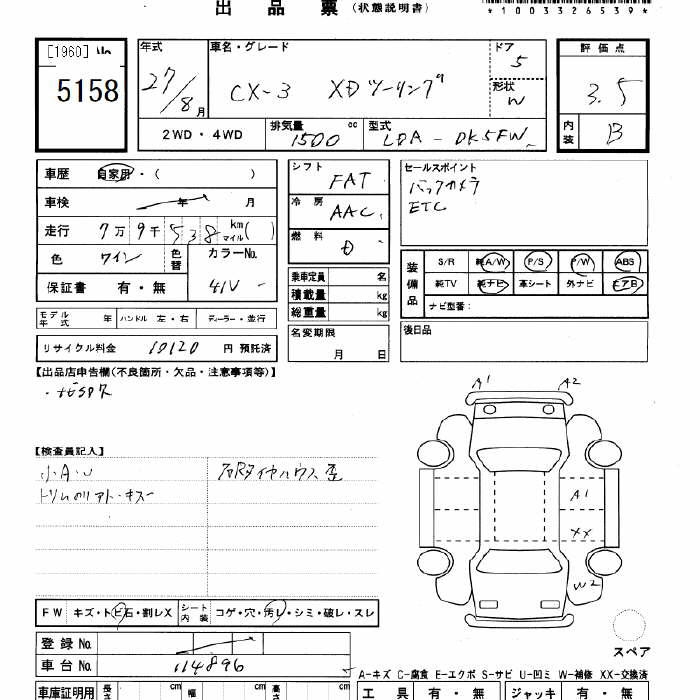 出品票（状態説明書）
*1003326539*
[1960]
5158
年式 27/8月
車名・グレード CX-3 XDツーリング
ドア 5
形状 W
評価点 3.5
内装 B
2WD・4WD
排気量 1500 cc
型式 LDA-DK5FW
車歴 自家用・（ ）
車検 年 月
走行 7万9千538 km マイル（ ）
色 ワイン 色替 カラーNo. 41V
保証書 有・無
シフト FAT
冷房 AAC
燃料 D
乗車定員 名
積載量 kg
総重量 kg
名変期限 月 日
セールスポイント
バックカメラ
ETC
装備品
S/R 純A/W P/S P/W ABS
純TV 純ナビ 革シート 外ナビ エアB
ナビ型番：
後日品
モデル年式 年 ハンドル 左・右 ディーラー・並行
リサイクル料金 10120 円 預託済
【出品店申告欄(不良箇所・欠品・注意事項等)】
【検査員記入】
小A・U
トリムのリアト・キズ
A1 A2
A1
XX
W2
FW キズ・トビ石・割レX シート内装 コゲ・穴・汚レ・シミ・破レ・スレ
スペア
登録No.
車台No. 114896
A-キズ C-腐食 E-エクボ S-サビ U-凹ミ W-補修 XX-交換済
車庫証明用 長さ cm 幅 cm 高さ cm
工具 有・無 ジャッキ 有・無